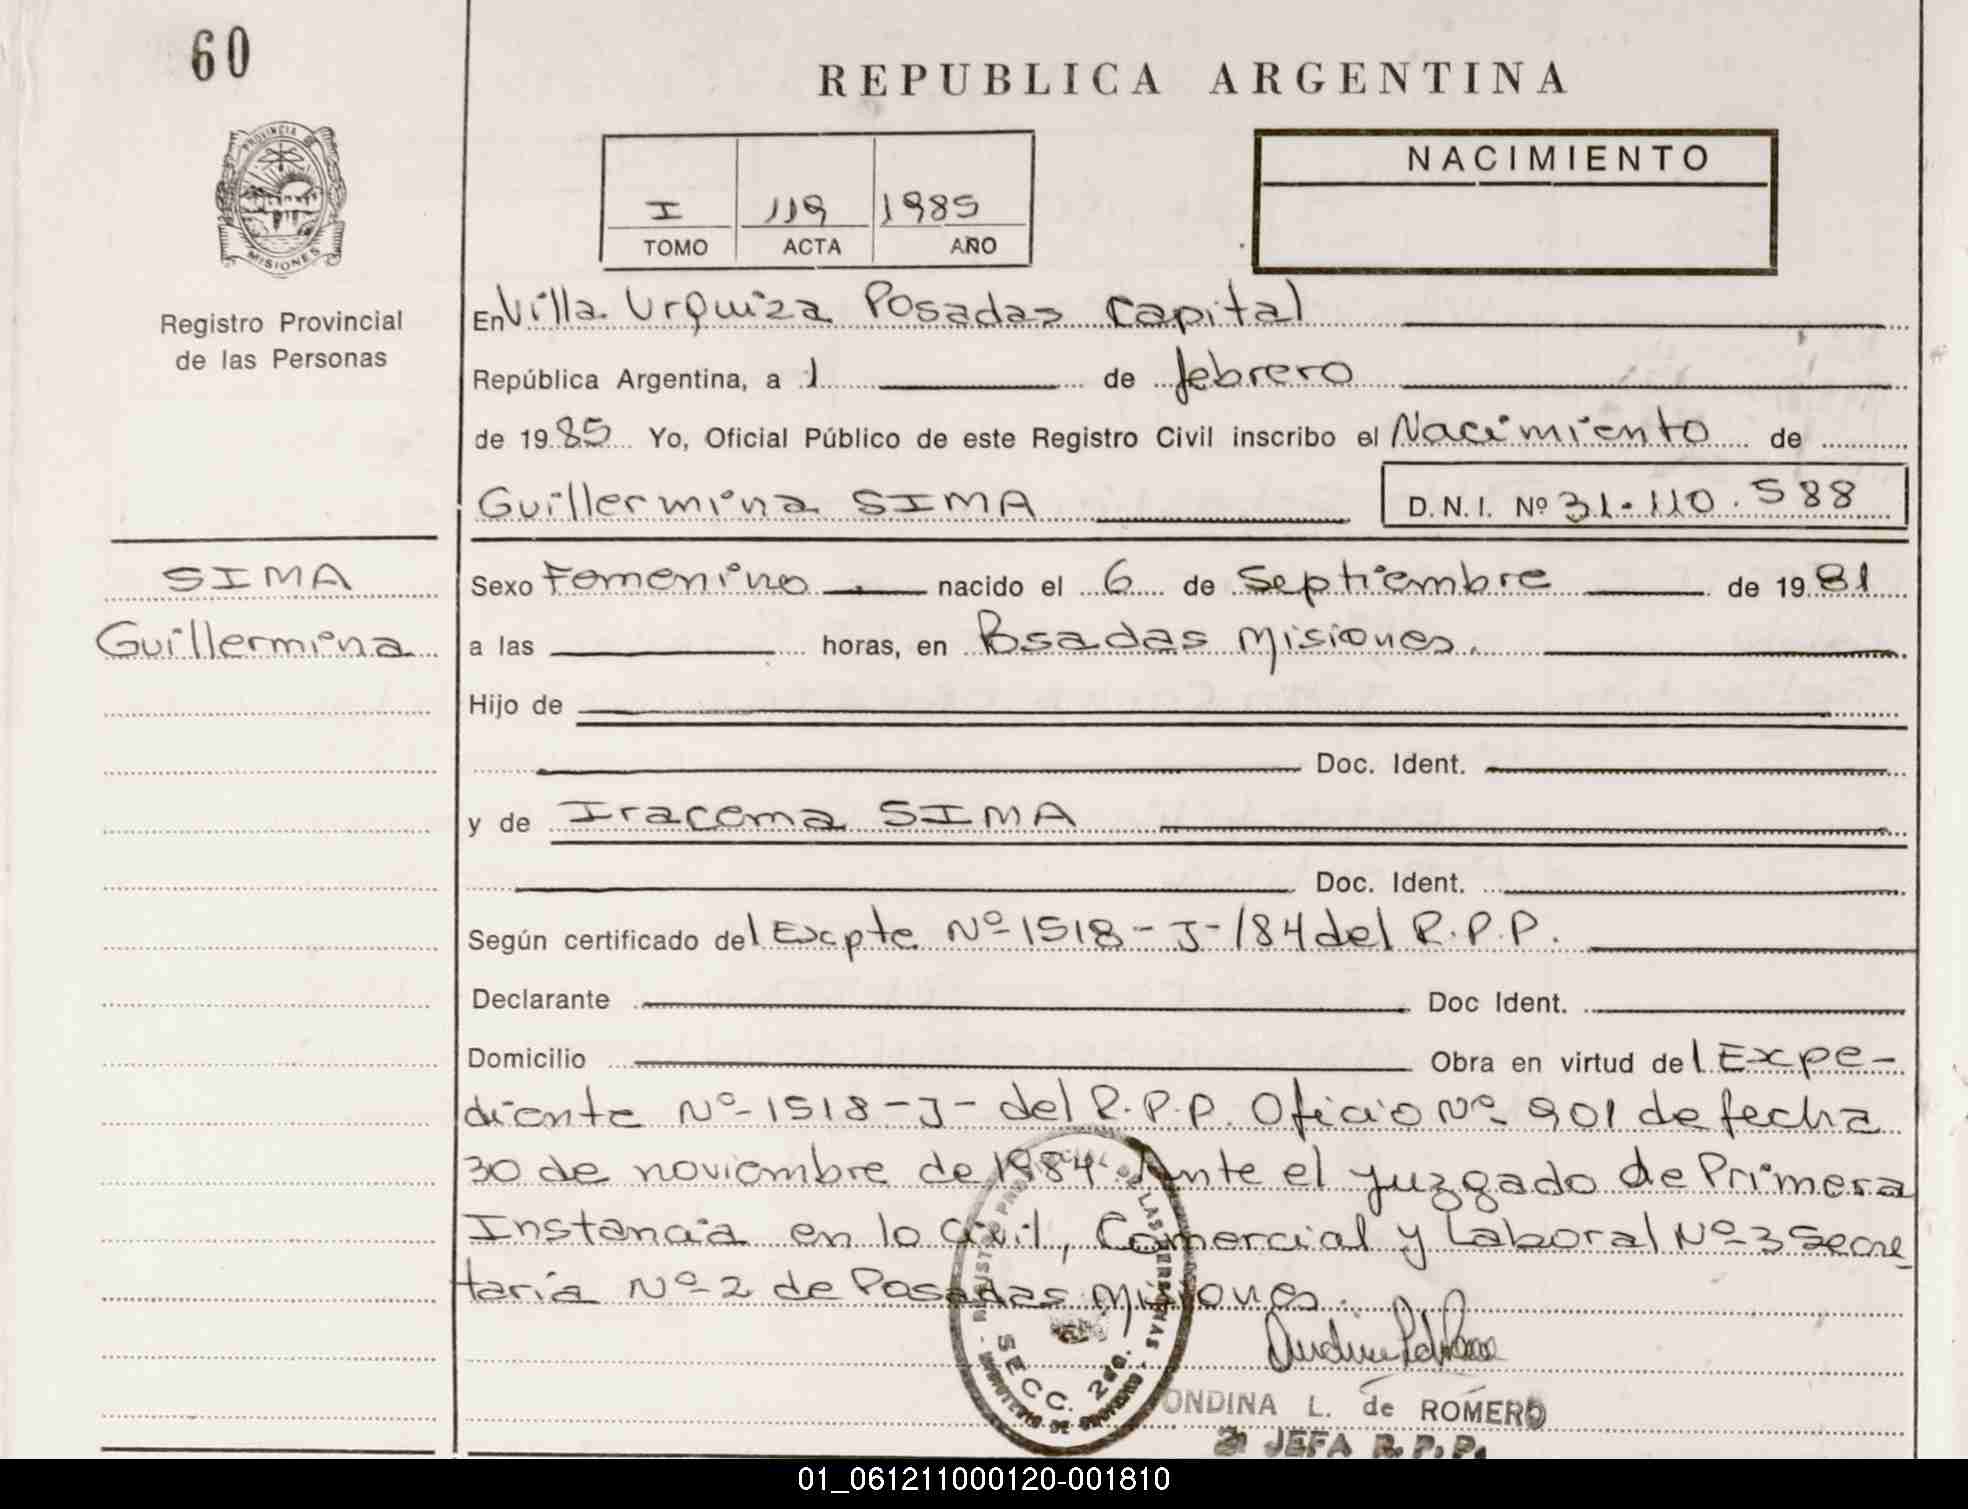 60
REPUBLICA ARGENTINA
PROVINCIA DE
MISIONES
I 119 1985
TOMO ACTA AÑO
NACIMIENTO
Registro Provincial
de las Personas
En Villa Urquiza Posadas Capital
República Argentina, a 1 de febrero
de 1985 Yo, Oficial Público de este Registro Civil inscribo el Nacimiento de
Guillermina SIMA D.N.I. Nº 31.110.588
SIMA
Guillermina
Sexo Femenino nacido el 6 de Septiembre de 1981
a las horas, en Posadas Misiones.
Hijo de
Doc. Ident.
y de Iracema SIMA
Doc. Ident.
Según certificado del Expte Nº 1518-J-/84 del R.P.P.
Declarante Doc Ident.
Domicilio Obra en virtud del Expe-
diente Nº 1518-J- del R.P.P. Oficio Nº 901 de fecha
30 de noviembre de 1984 Ante el juzgado de Primera
Instancia en lo Civil, Comercial y Laboral Nº 3 Secre
taria Nº 2 de Posadas Misiones.
REGISTRO PROVINCIAL DE LAS PERSONAS
SECC. 2da.
ONDINA L. de ROMERO
JEFA R.P.P.
01_061211000120-001810